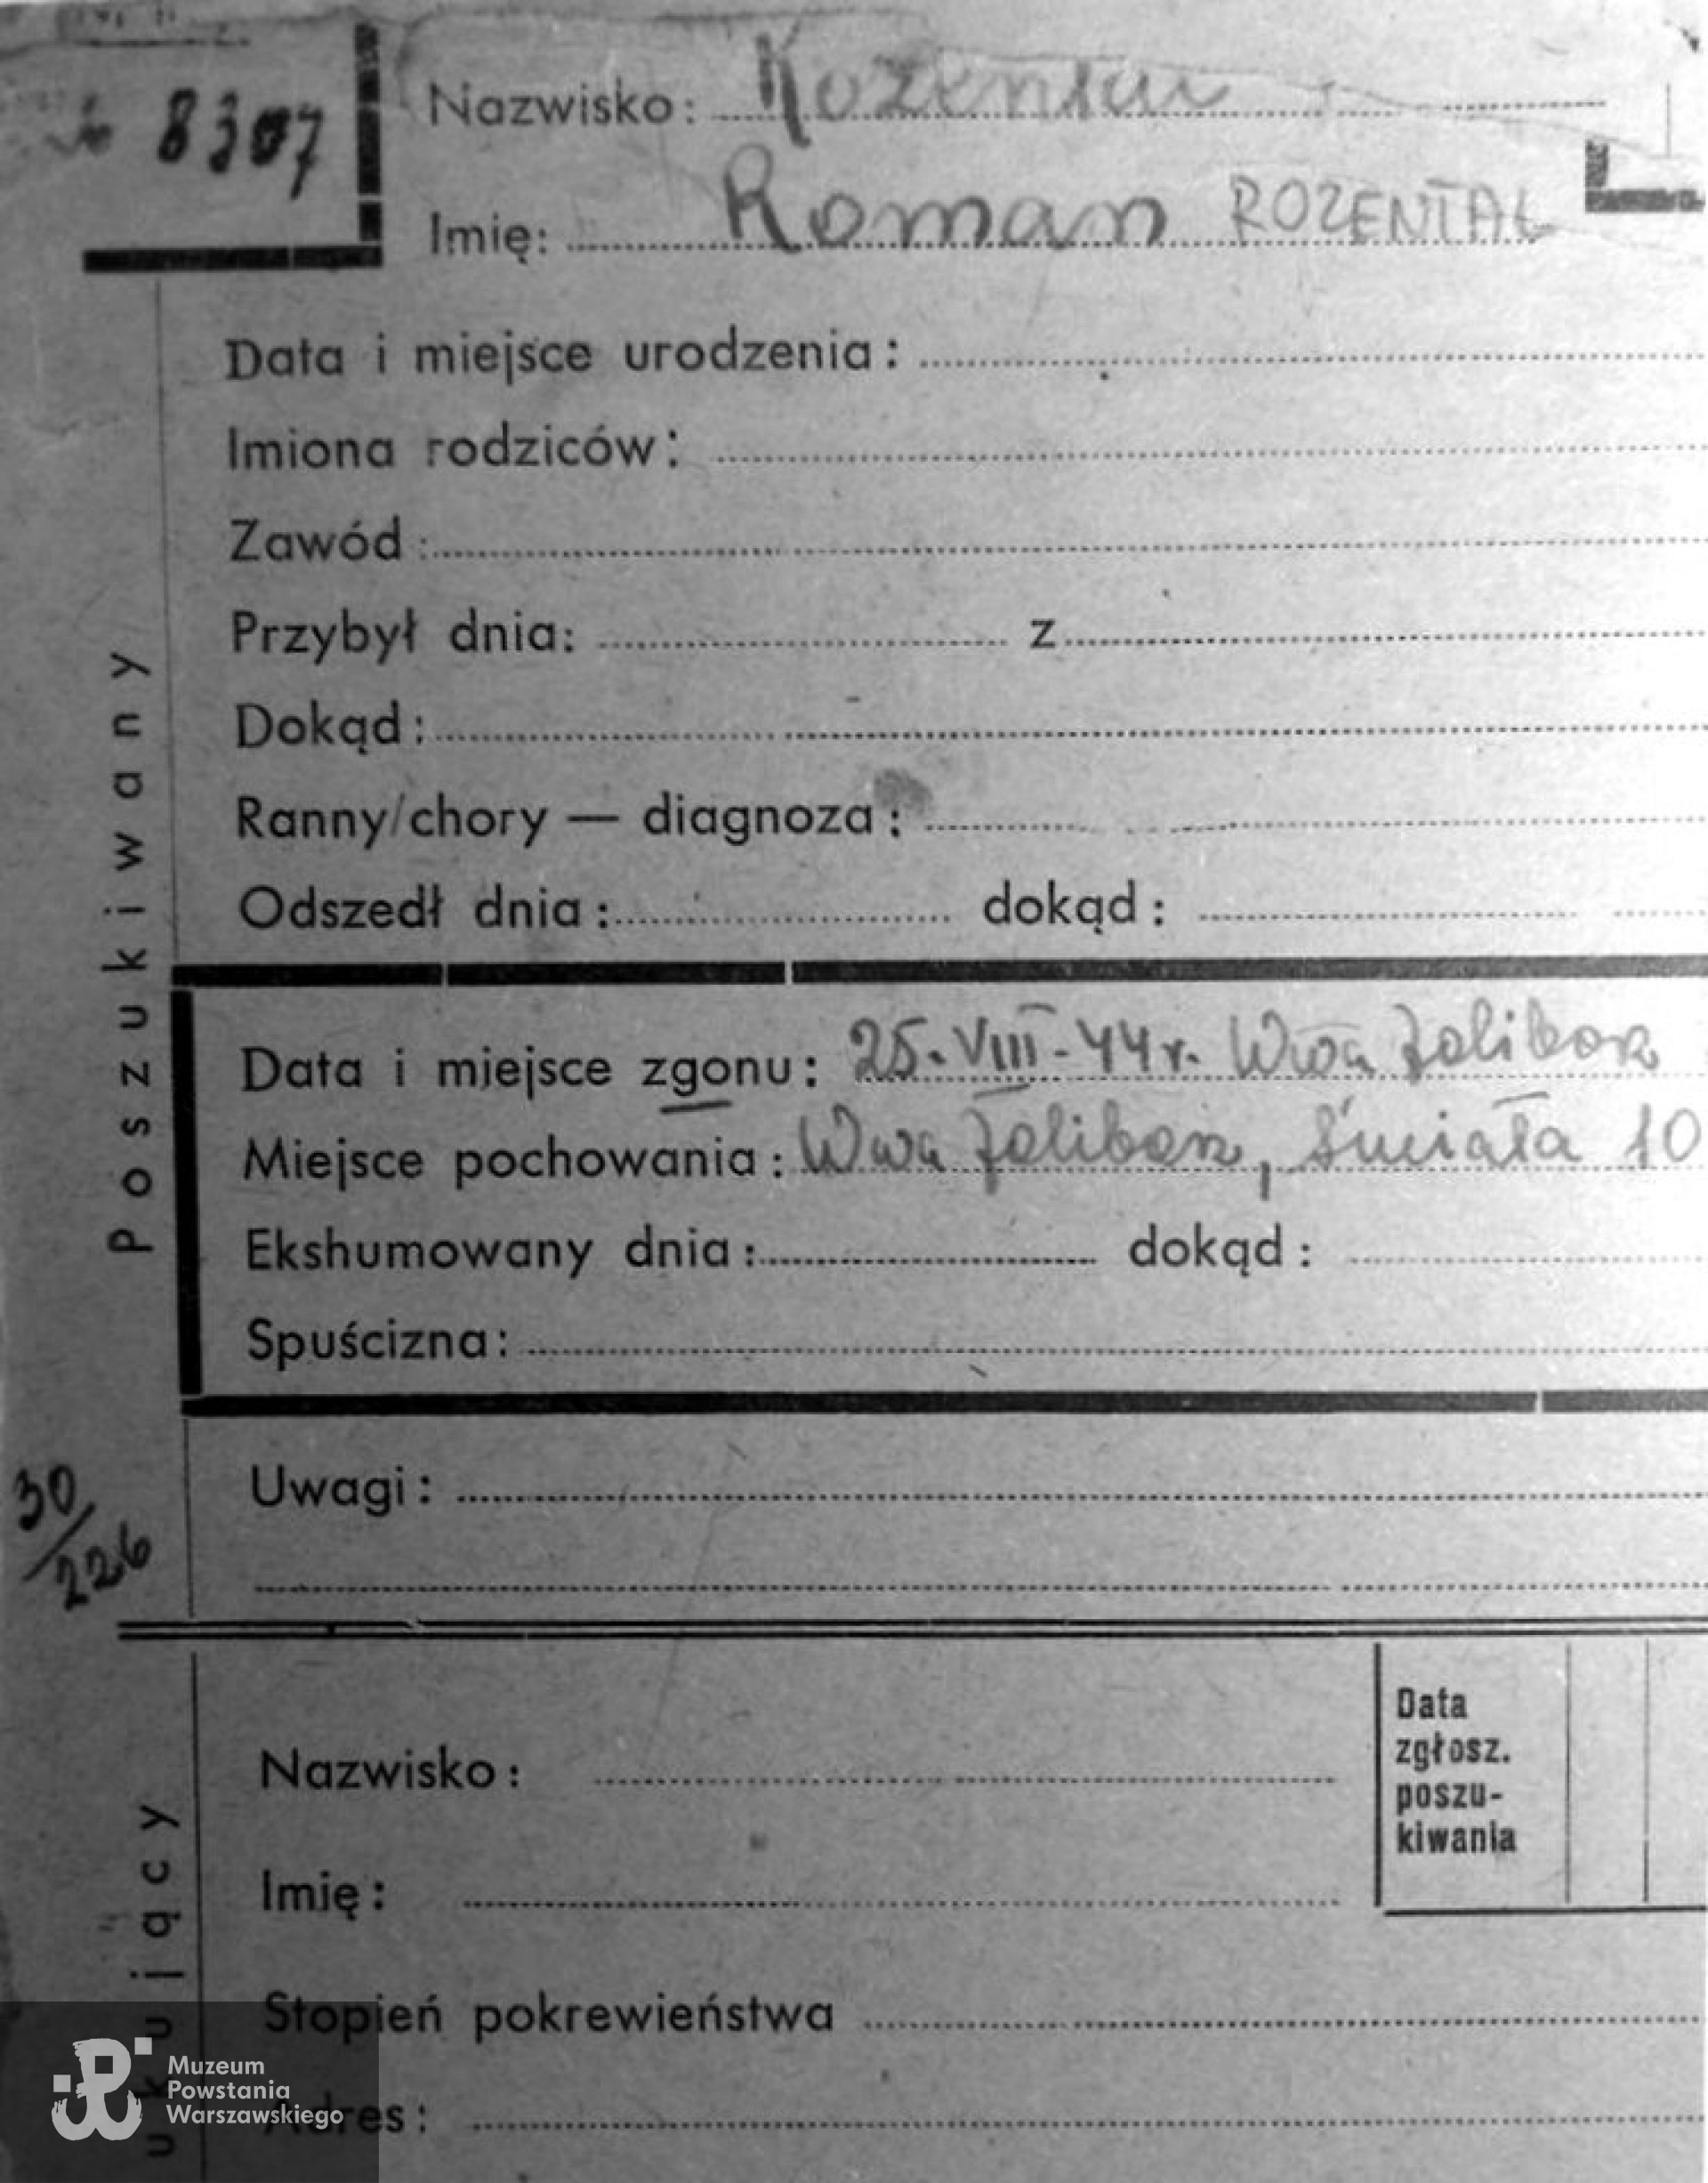 8307
Nazwisko: Rozental
Imię: Roman ROZENTAL
Data i miejsce urodzenia:
Imiona rodziców:
Zawód:
Przybył dnia: z
Dokąd:
Ranny/chory — diagnoza:
Odszedł dnia: dokąd:
Poszukiwany
Data i miejsce zgonu: 25.VIII-44r. Wwa Żolibor
Miejsce pochowania: Wwa Żolibor, Śmiała 10
Ekshumowany dnia: dokąd:
Spuścizna:
30/226
Uwagi:
Nazwisko:
Data
zgłosz.
poszu-
kiwania
Imię:
ukujący
Stopień pokrewieństwa
Adres:
Muzeum
Powstania
Warszawskiego